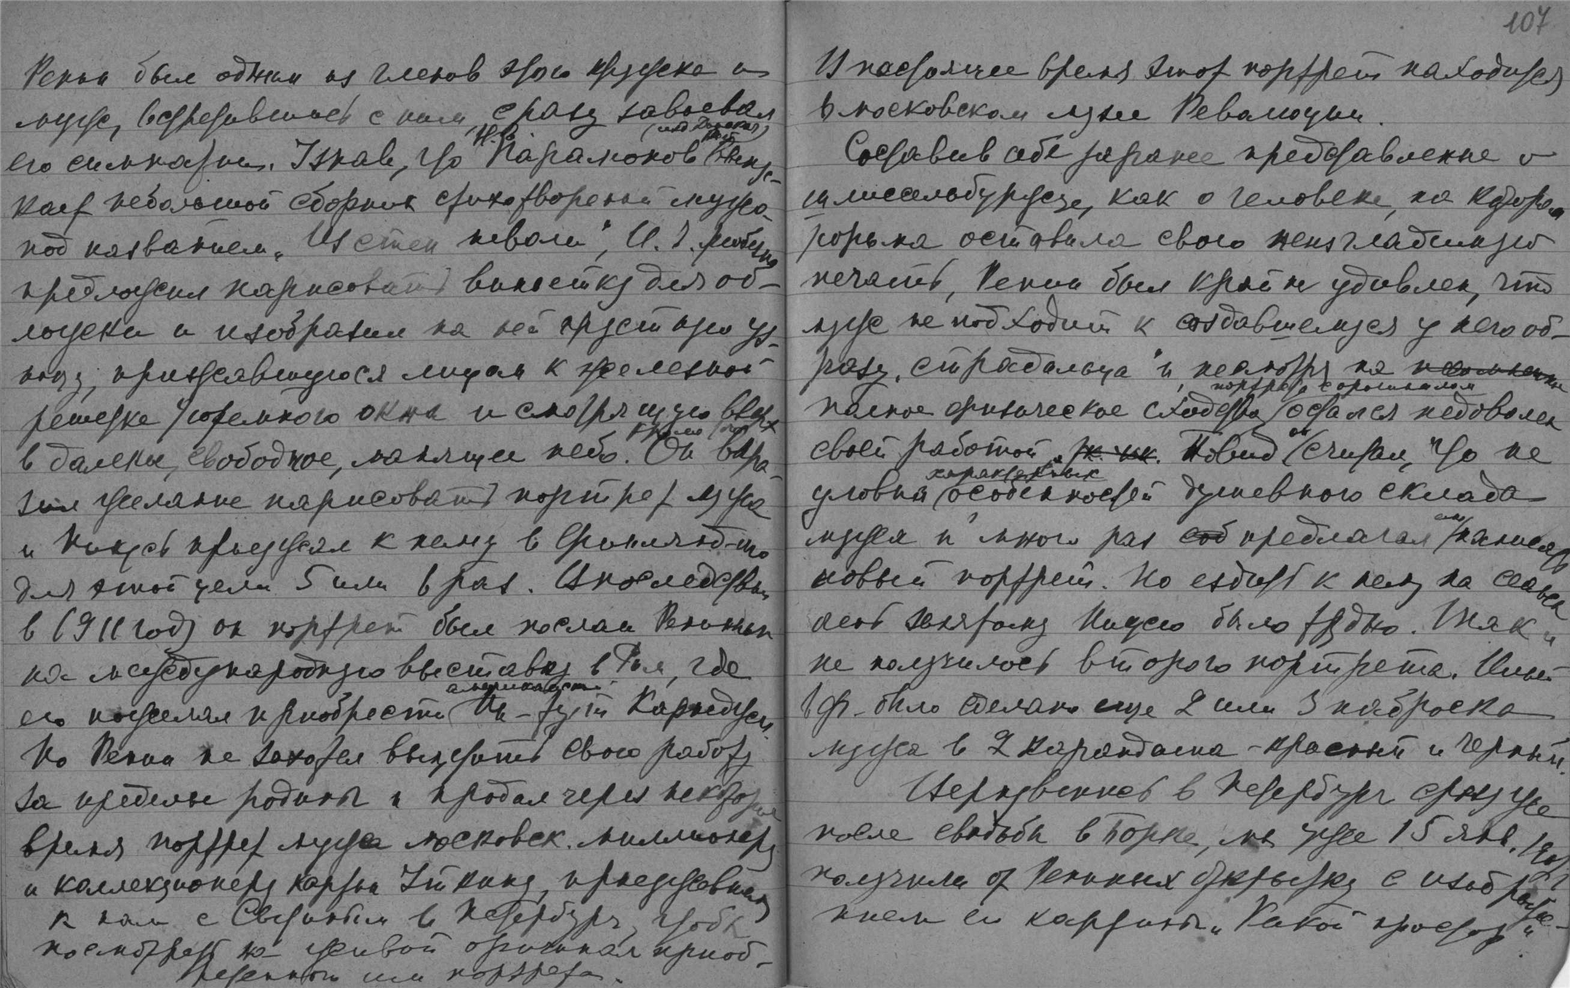 Репин был одним из членов этого кружка и
муж, встретившись с ним, сразу завоевал
его симпатии. Узнав, что Н. В. Парамонов (изд. Донская речь) выпус-
кает небольшой сборник стихотворений мужа
под названием „Из стен неволи“, И. Е. любезно
предложил нарисовать виньетку для об-
ложки и изобразил на ней грустную уз-
ницу, прижавшуюся лицом к железной
решетке тюремного окна и смотрящую вверх
в далекое, свободное, манящее небо. Он выра-
зил желание нарисовать портрет мужа
и Никусь приезжал к нему в Финляндию
для этой цели 5 или 6 раз. Впоследствии
в 1911 году он портрет был послан Репиным
на международную выставку в Рим, где
его пожелал приобрести американский Ин-тут Карнеджи.
Но Репин не захотел выпустить свою работу
за пределы родины и продал через некоторое
время портрет мужа московск. миллионеру
и коллекционеру картин Цейтлину, приезжавшему
к нам с Сытиным в Петербург, чтобы
посмотреть на живой оригинал приоб-
ретенного им портрета.
107
В настоящее время этот портрет находится
в московском музее Революции.
Составив себе заранее представление о
шлиссельбуржце, как о человеке, на котором
тюрьма оставила свою неизгладимую
печать, Репин был крайне удивлен, что
муж не подходит к создавшемуся у него об-
разу „страдальца“ и, несмотря на
полное физическое сходство портрета с оригиналом, остался недоволен
своей работой. Повид. он считал, что не
уловил характерных особенностей душевного склада
мужа и много раз предлагал ему написать
новый портрет. Но ездить к нему на сеансы
очень занятому Никусю было трудно. Так и
не получилось второго портрета. Им
было сделано еще 2 или 3 наброска
мужа в 2 карандаша - красный и черный.
Вернувшись в Петербург сразу же
после свадьбы в Торке, мы уже 15 янв.
получили от Репиных открытку с изображе-
нием его картины „Какой простор“